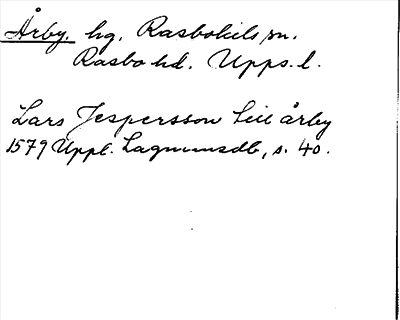 Årby. hg. Rasbokils sn.
Rasbo hd. Upps. l.
Lars Jespersson till årby
1579 Uppl. Lagmansdb, s. 40.